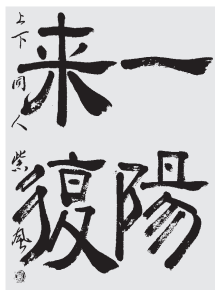 一陽
来復
上下同人 紫風